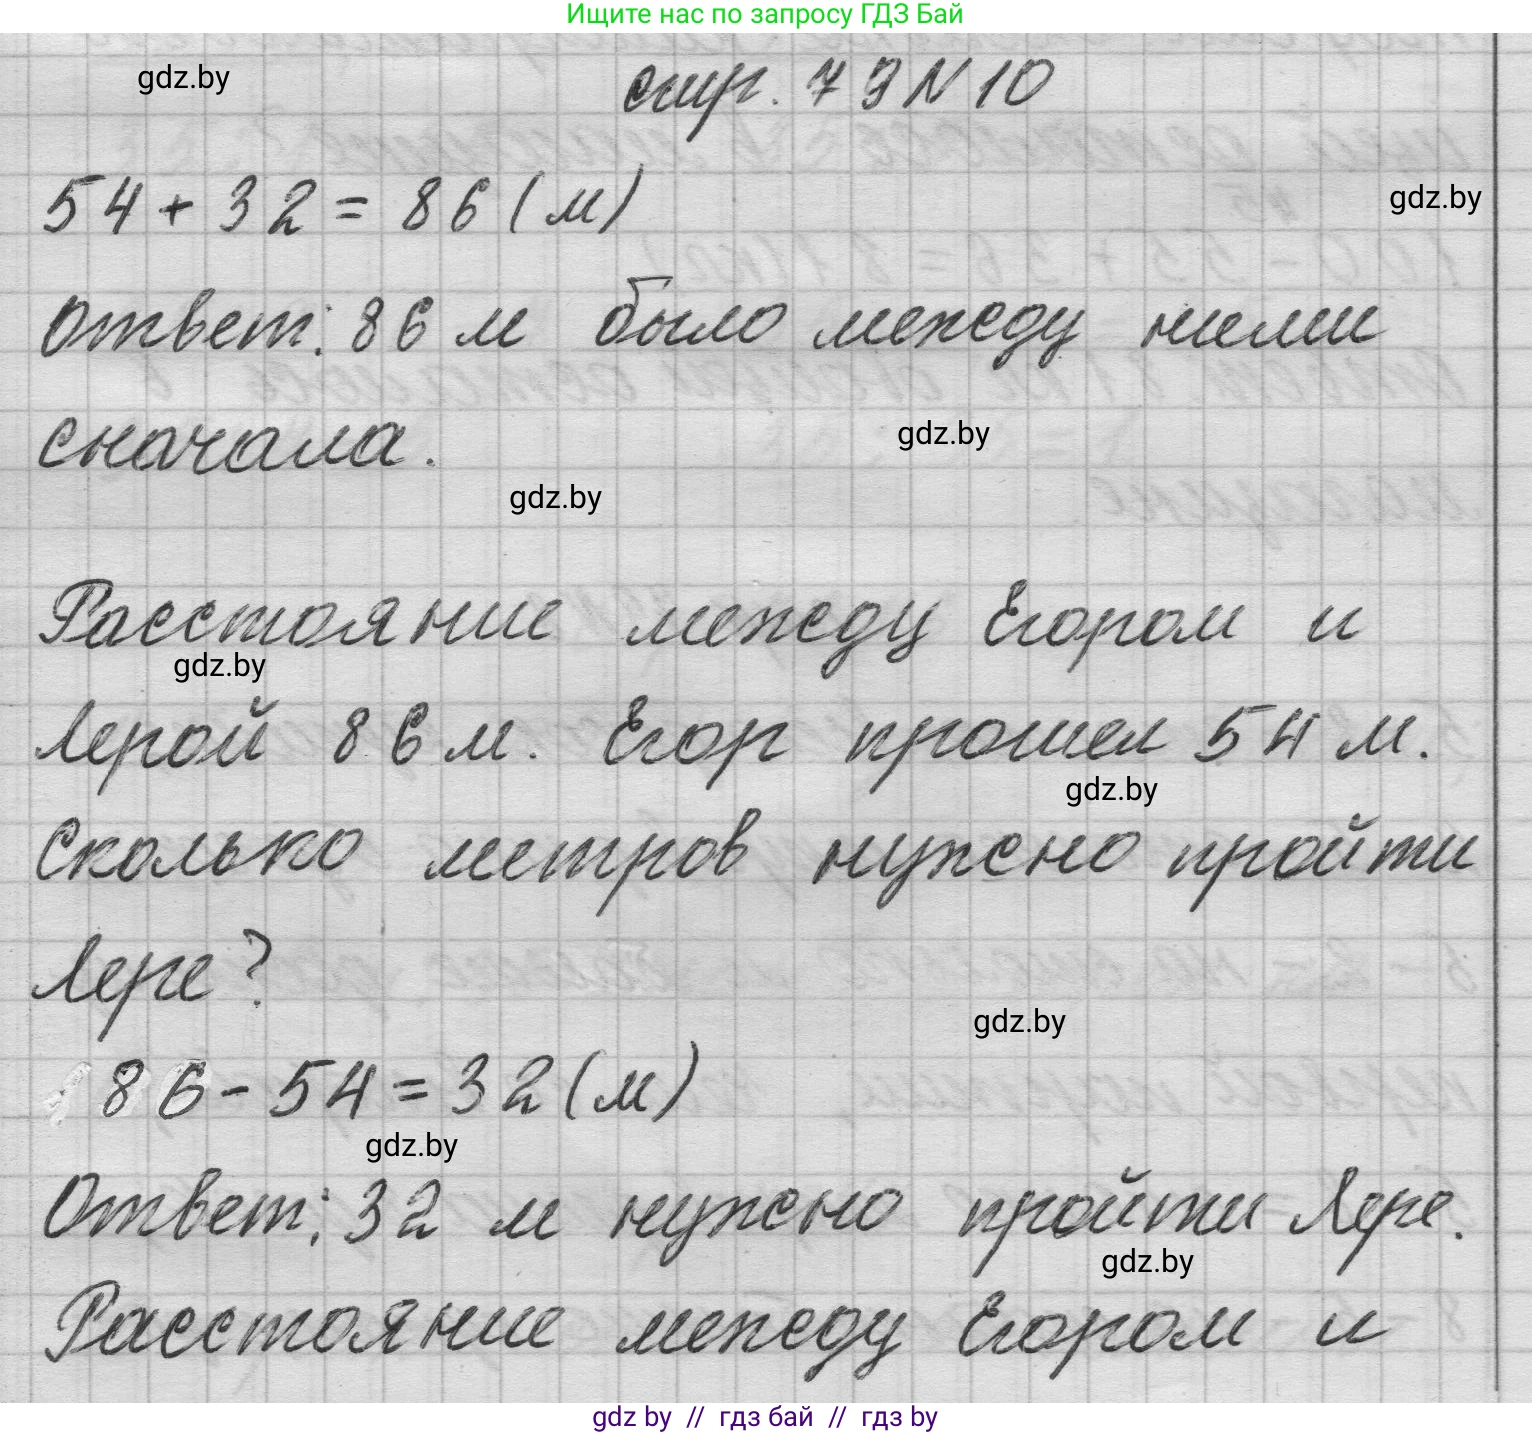 Ищите нас по запросу ГДЗ Бай
gdz.by
стр. 79 N 10
54 + 32 = 86 (м)
gdz.by
Ответ: 86 м было между ними
сначала.
gdz.by
gdz.by
Расстояние между Егором и
gdz.by
Лерой 86 м. Егор прошел 54 м.
gdz.by
Сколько метров нужно пройти
Лере?
gdz.by
86 - 54 = 32 (м)
gdz.by
Ответ: 32 м нужно пройти Лере.
gdz.by
Расстояние между Егором и
gdz by // гдз бай // гдз by